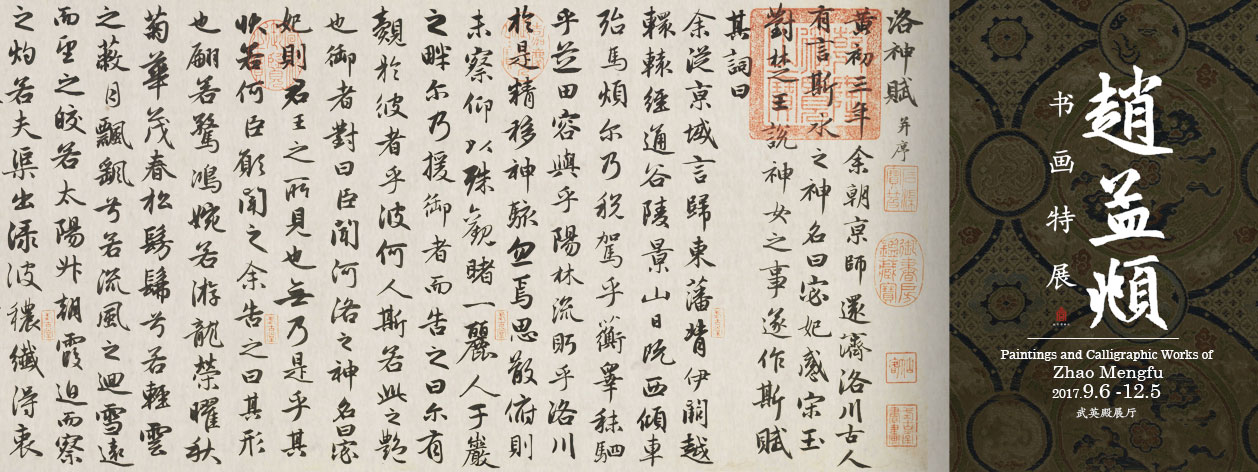 洛神賦 并序
黄初三年余朝京師還濟洛川古人
有言斯水之神名曰宓妃感宋玉
對楚王說神女之事遂作斯賦
其詞曰
余從京域言歸東藩背伊闕越
轘轅經通谷陵景山日既西傾車
殆馬煩尔乃税駕乎蘅皋秣駟
乎芝田容與乎陽林流眄乎洛川
於是精移神駭忽焉思散俯則
未察仰以殊觀睹一麗人于巖
之畔尔乃援御者而告之曰尔有
覿於彼者乎彼何人斯若此之艷
也御者對曰臣聞河洛之神名曰宓
妃則君王之所見也無乃是乎其
状若何臣願聞之余告之曰其形
也翩若驚鴻婉若游龍榮曜秋
菊華茂春松髣髴兮若輕雲
之蔽月飄飖兮若流風之迴雪遠
而望之皎若太陽升朝霞迫而察
之灼若夫渠出渌波穠纖得衷
趙孟頫
书画特展
Paintings and Calligraphic Works of
Zhao Mengfu
2017.9.6 -12.5
武英殿展厅